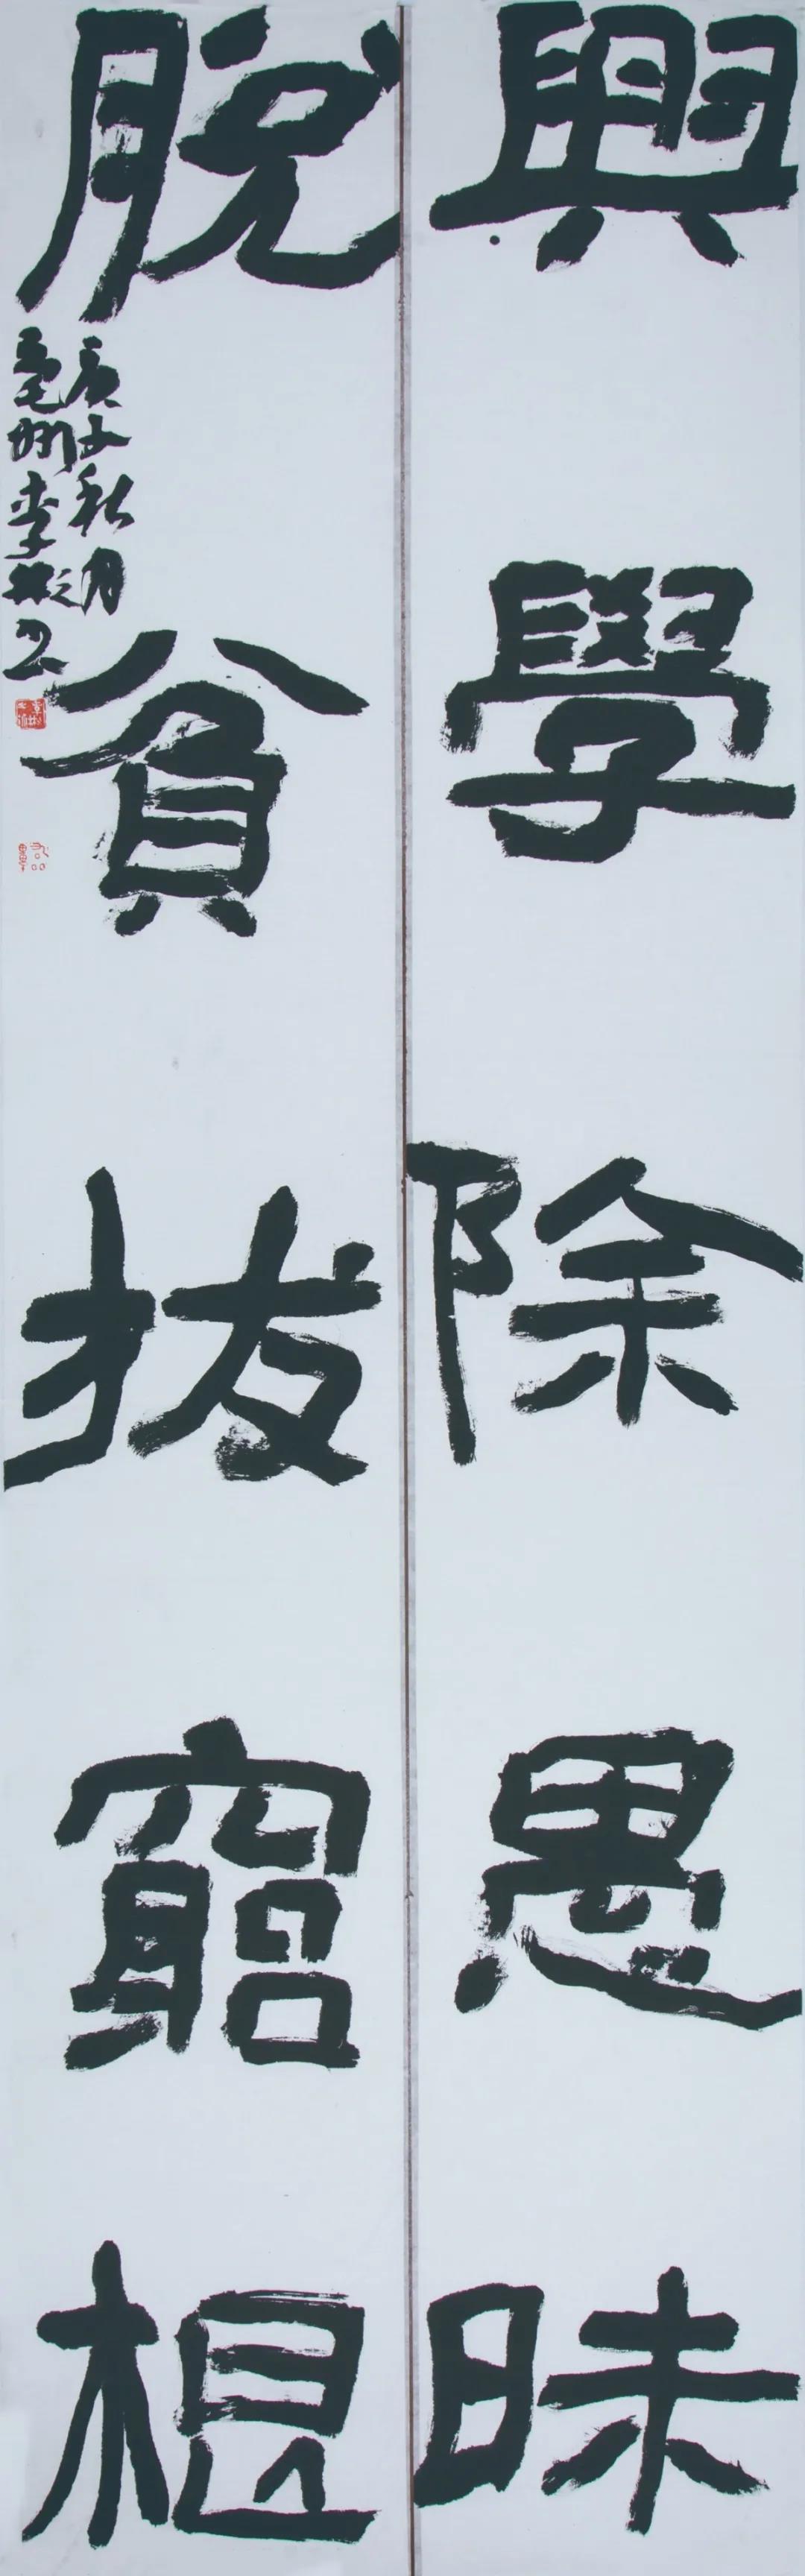 興學除愚昧
脫貧拔窮根
庚子秋月
亳州李彬之